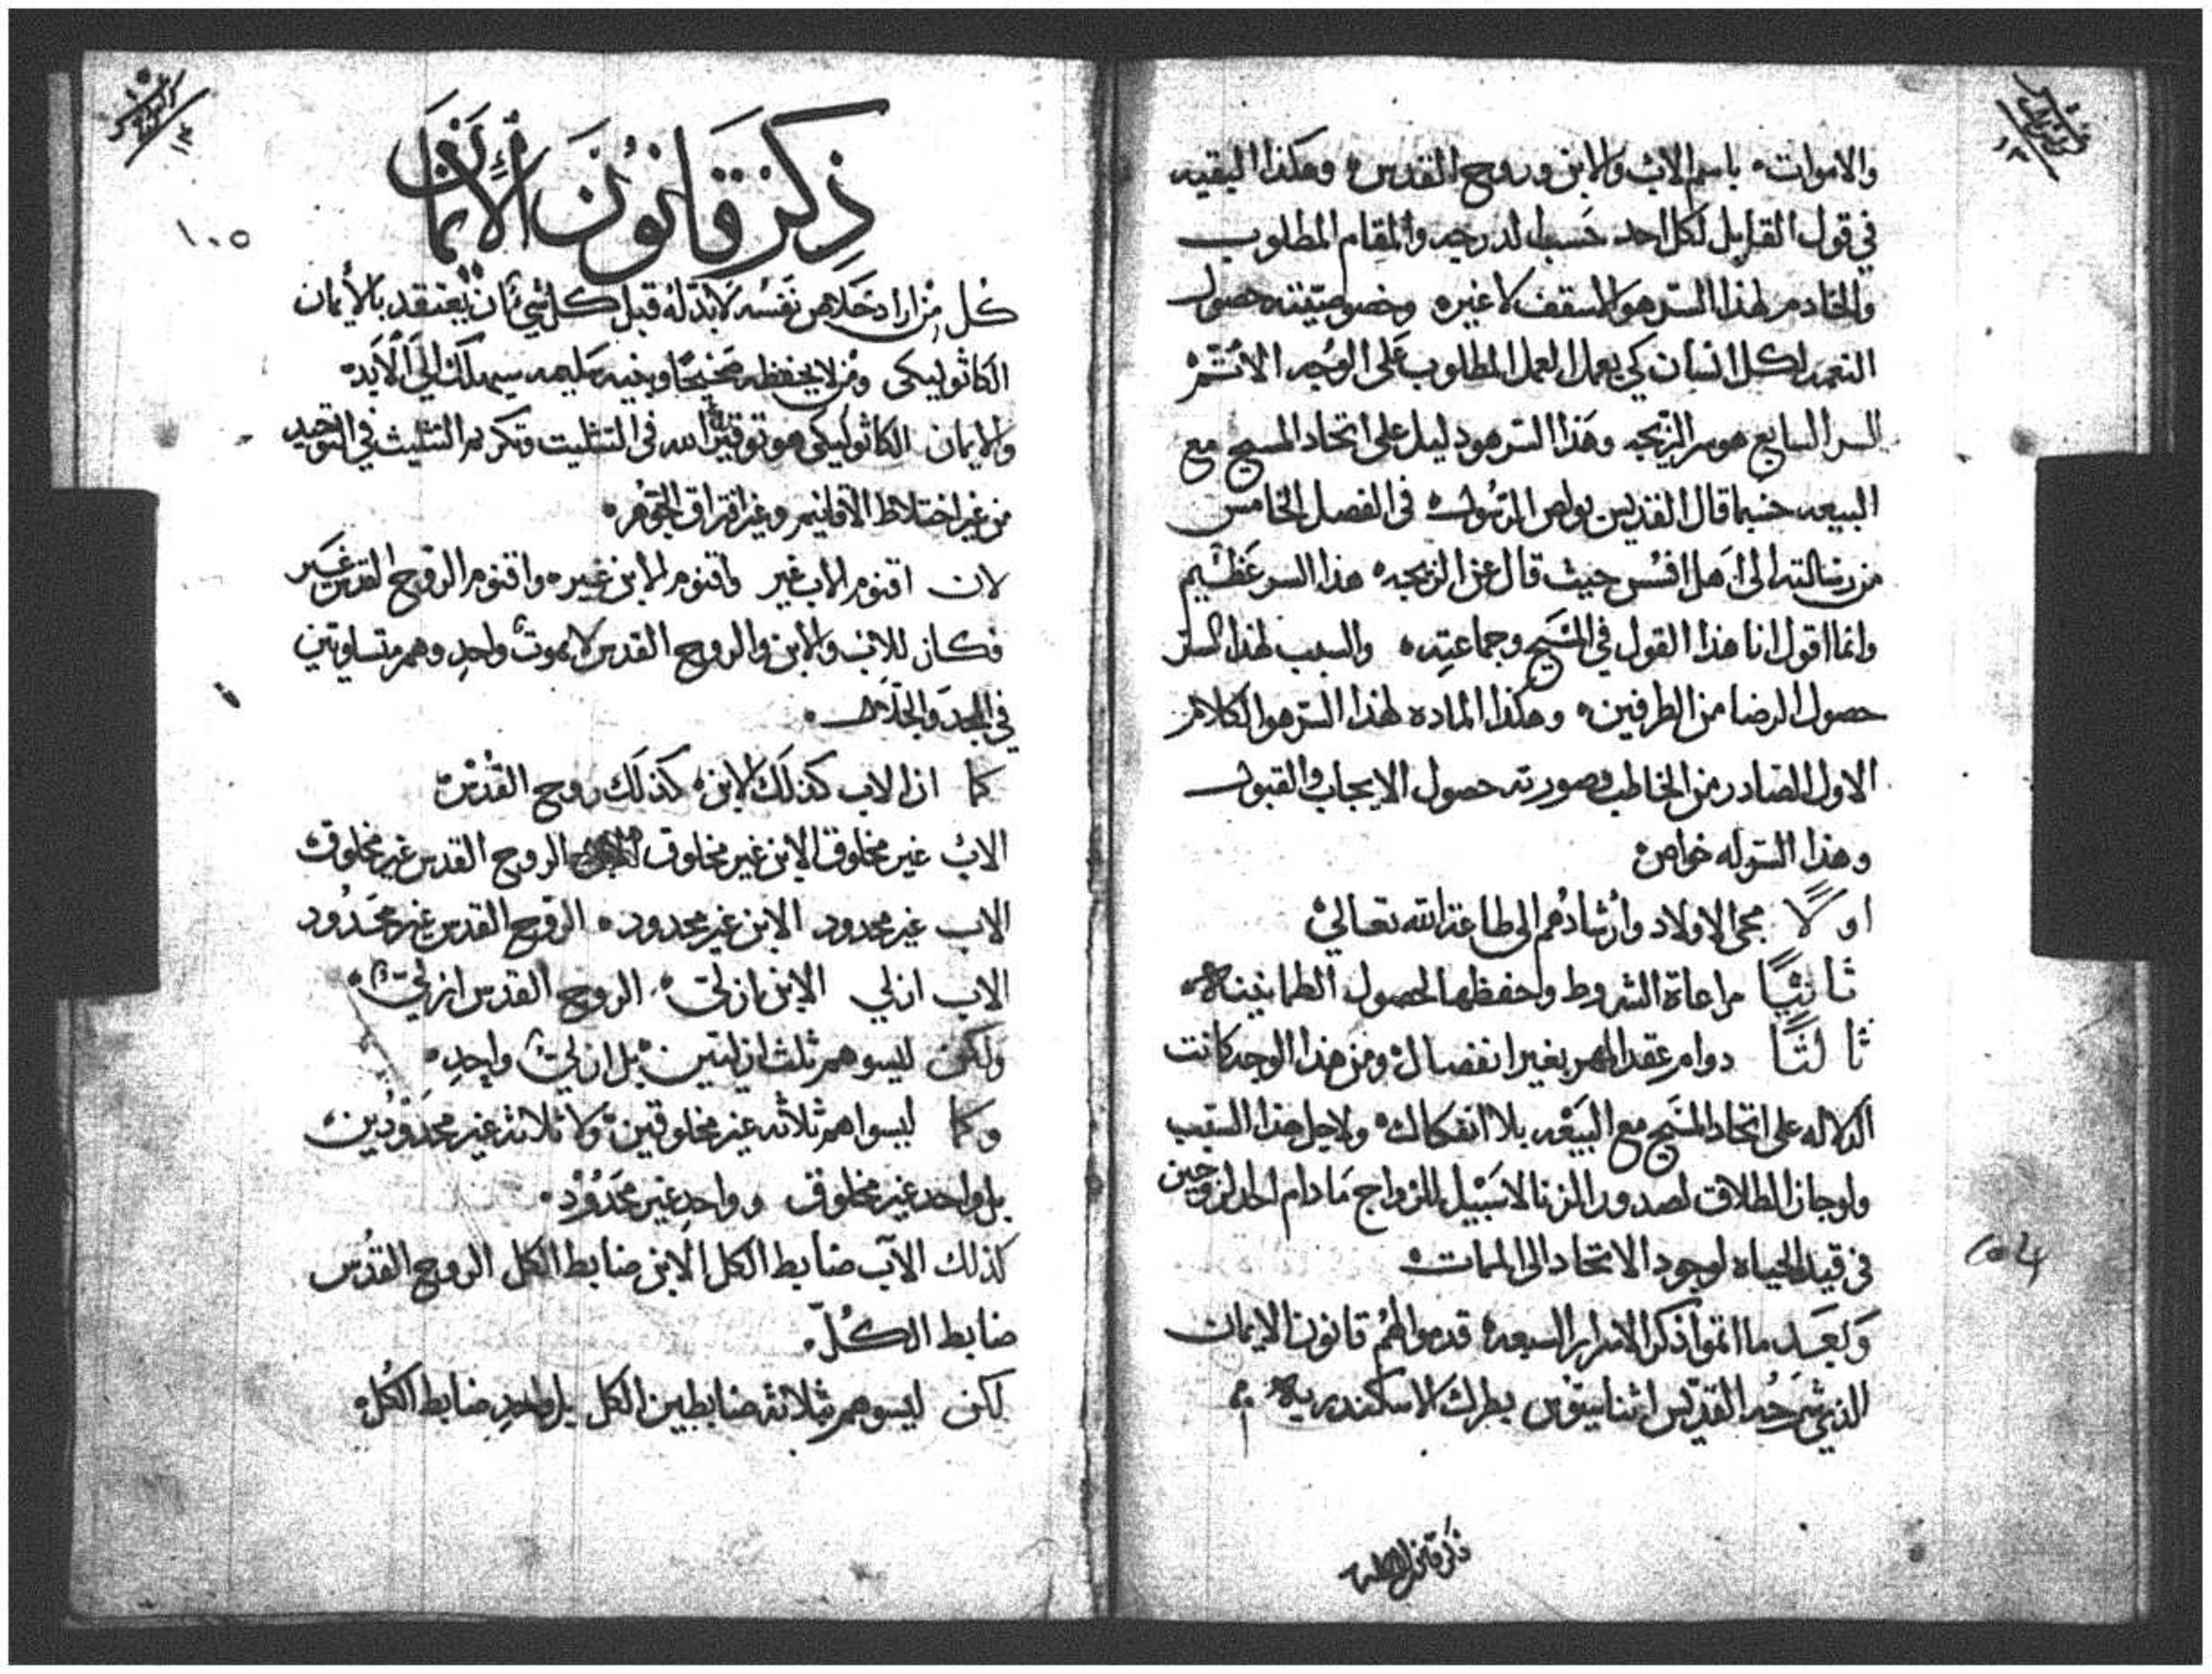 والاموات باسم الاب والابن وروح القدس وهكذا البقيه
في قول القايل لكل احد حسب لدرجه والمقام المطلوب
والخادم لهذا السر هو الاسقف لا غيره وخصوصيته حصول
النعمه لكل انسان كي يعمل العمل المطلوب على الوجه الاتم
السر السابع هو سر الزيجه وهذا السر هو دليل على اتحاد المسيح مع
البيعه حسبما قال القديس بولص الرسول في الفصل الخامس
من رسالته الى اهل افسس حيث قال عن الزيجه هذا السر عظيم
وانما اقول انا هذا القول في المسيح وجماعته والسبب لهذا السر
حصول الرضا من الطرفين وهكذا الماده لهذا السر هو الكلام
الاول الصادر من الخاطب وصورته حصول الايجاب والقبول
وهذا السر له خواص
اولاً مجى الاولاد وارشادهم الى طاعة الله تعالى
ثانيًا مراعاة الشروط وحفظها لحصول الطمانينة
ثالثًا دوام عقد المهر بغير انفصال ومن هذا الوجه كانت
الدلاله على اتحاد المسيح مع البيعه بلا انفكاك ولاجل هذا السبب
ولو جاز الطلاق لصدور الزنا لا سبيل للزواج ما دام احد الزوجين
في قيد الحياه لوجود الاتحاد الى الممات
وبعد ما اتموا ذكر الاسرار السبعه قدموا لهم قانون الايمان
الذي شرحه القديس اثناسيوس بطرك الاسكندريه
ذكر قانون الايمان
١٠٥
كل من اراد خلاص نفسه لابد له قبل كل شيء ان يعتقد بالأيمان
الكاثوليكى ومن لا يحفظه صحيحًا وبنيه سليمه سيهلك الى الابد
والايمان الكاثوليكي هو توقير الله في التثليث وتكريم التثليث في التوحيد
من غير اختلاط الأقانيم وغير افتراق الجوهر
لان اقنوم الاب غير واقنوم الابن غير واقنوم الروح القدس غير
فكان للاب والابن والروح القدس لاهوت واحد وهم متساويين
في المجد والجلال
كما ان الاب كذلك الابن كذلك روح القدس
الاب غير مخلوق الابن غير مخلوق الروح القدس غير مخلوق
الاب غير محدود الابن غير محدود الروح القدس غير محدود
الاب ازلي الابن ازلي الروح القدس ازلي
ولكن ليسو هم ثلث ازليين بل ازلي واحد
وكما ليسوا هم ثلاثه غير مخلوقين ولا ثلاثه غير محدودين
بل واحد غير مخلوق وواحد غير محدود
كذلك الآب ضابط الكل الابن ضابط الكل الروح القدس
ضابط الكل
لكن ليسو هم ثلاثه ضابطين الكل بل واحد ضابط الكل